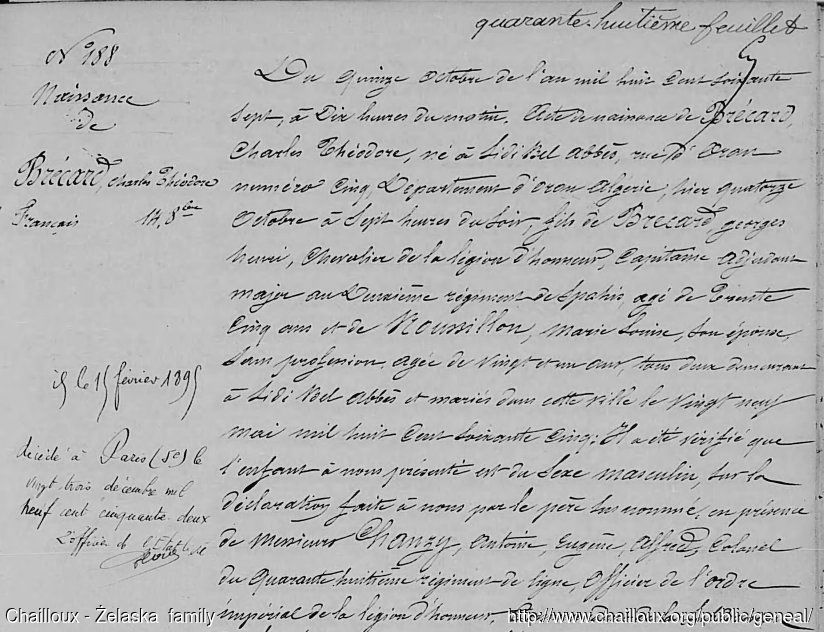 quarante-huitième feuillet
No 188
Naissance
de
Brécard, Charles Théodore
Français 14, 8bre
Du quinze octobre de l'an mil huit cent soixante
sept, à dix heures du matin. Acte de naissance de Brécard,
Charles Théodore, né à Sidi Bel Abbès, rue d'Oran
numéro cinq, Département d'Oran Algérie, hier quatorze
octobre à sept heures du soir, fils de Brecard, georges
henri, chevalier de la légion d'honneur, Capitaine adjudant
major au Deuxième régiment de Spahis, agé de trente
cinq ans et de Roussillon, marie Louise, son épouse,
sans profession, agée de vingt et un ans, tous deux demeurant
à Sidi Bel Abbès et mariés dans cette ville le vingt neuf
mai mil huit cent soixante cinq; Il a été vérifié que
l'enfant à nous présenté est du sexe masculin, sur la
déclaration faite à nous par le père sus nommé, en présence
de messieurs Chanzy, Antoine, Eugène, Alfred, Colonel
du quarante huitième régiment de ligne, officier de l'ordre
impérial de la légion d'honneur,
le 15 février 1895
décédé à Paris (5e) le
vingt trois décembre mil
neuf cent cinquante deux
L'officier de l'Etat
Chailloux - Żelaska family
http://www.chailloux.org/public/geneal/